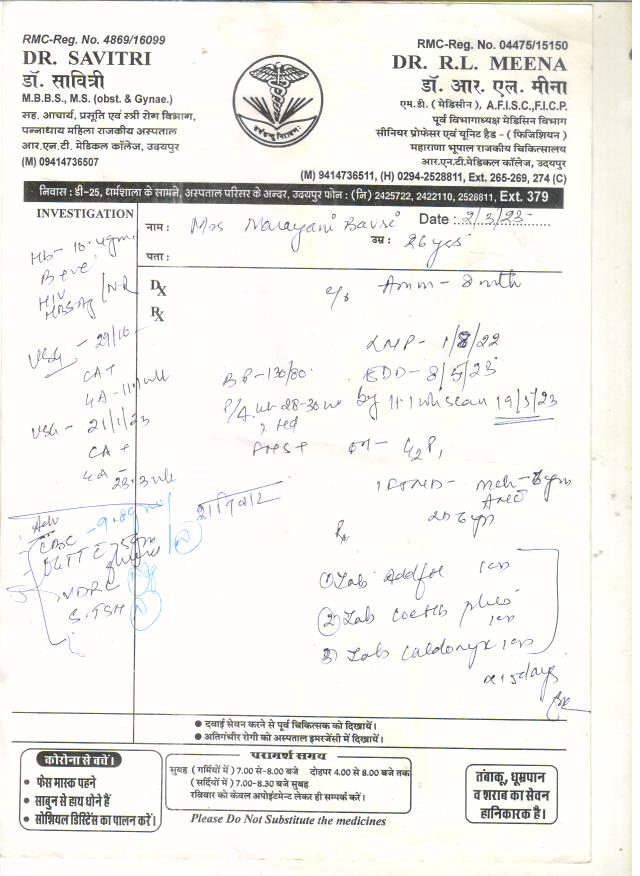 RMC-Reg. No. 4869/16099
DR. SAVITRI
डॉ. सावित्री
M.B.B.S., M.S. (obst. & Gynae.)
सह. आचार्य, प्रसूति एवं स्त्री रोग विभाग,
पन्नाधाय महिला राजकीय अस्पताल
आर.एन.टी. मेडिकल कॉलेज, उदयपुर
(M) 09414736507
RMC-Reg. No. 04475/15150
DR. R.L. MEENA
डॉ. आर. एल. मीना
एम.डी. ( मेडिसीन ), A.F.I.S.C.,F.I.C.P.
पूर्व विभागाध्यक्ष मेडिसिन विभाग
सीनियर प्रोफेसर एवं यूनिट हैड - ( फिजिशियन )
महाराणा भूपाल राजकीय चिकित्सालय
आर.एन.टी.मेडिकल कॉलेज, उदयपुर
(M) 9414736511, (H) 0294-2528811, Ext. 265-269, 274 (C)
निवास : डी-25, धर्मशाला के सामने, अस्पताल परिसर के अन्दर, उदयपुर फोन : (नि) 2425722, 2422110, 2528811, Ext. 379
INVESTIGATION
नाम : Mrs Narayani
Date : 2/3/23
उम्र : 26 yrs
पता :
Hb- 10.4gm
B+ve
HIV
HBsAg / NR
USG - 29/10
GA - 11.1 wk
USG - 21/1/23
GA - 23.3 wk
Adv
CBC - 9.8gm
OGTT 75gm
VDRL
S.TSH
Dx
Rx
c/o Amm - 8 mth
LMP - 1/8/22
BP - 130/80
EDD - 8/5/23
P/A ut 28-30 wk
by 11.1 wk scan 19/5/23
FHS +
OH - G2P1
शनिवार
Rx
1) Tab
2) Tab
3) Tab
x 15 days
● दवाई सेवन करने से पूर्व चिकित्सक को दिखायें।
● अतिगंभीर रोगी को अस्पताल इमरजेंसी में दिखायें।
कोरोना से बचें।
• फेस मास्क पहने
• साबुन से हाथ धोने हैं
• सोशियल डिस्टेंस का पालन करें।
परामर्श समय
सुबह ( गर्मियों में ) 7.00 से-8.00 बजे दोहपर 4.00 से 8.00 बजे तक
( सर्दियों में ) 7.00-8.30 बजे सुबह
रविवार को केवल अपोइंटमेन्ट लेकर ही सम्पर्क करें।
Please Do Not Substitute the medicines
तंबाकू, धूम्रपान
व शराब का सेवन
हानिकारक है।